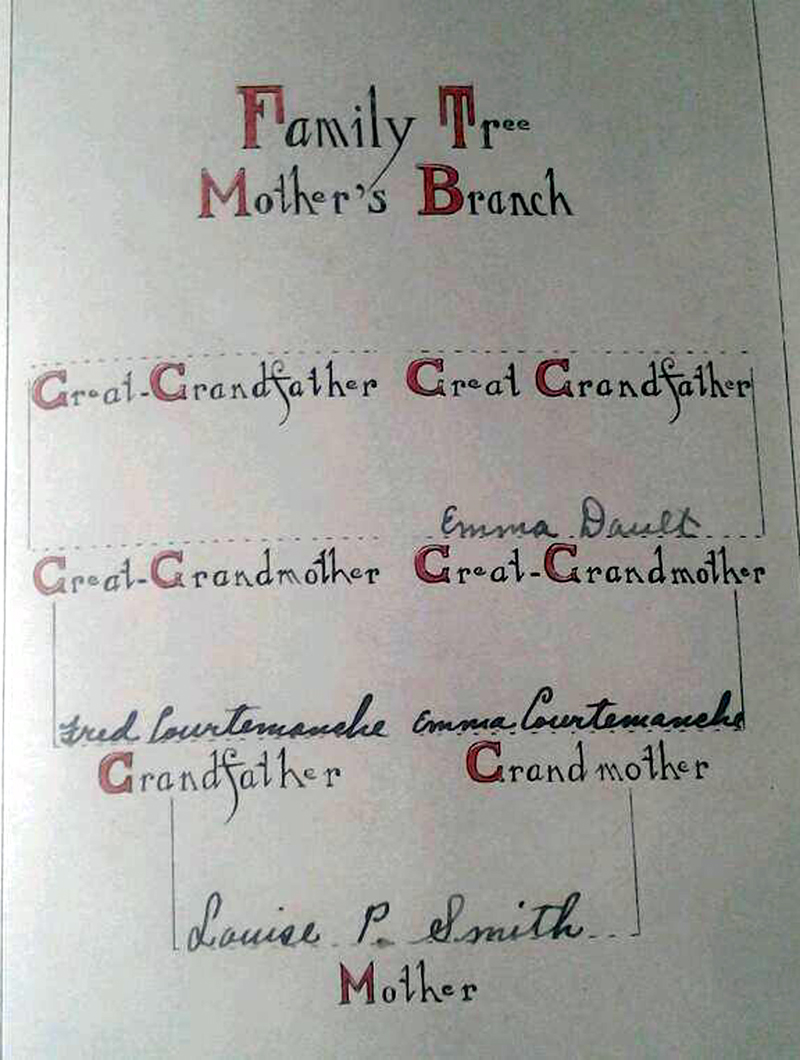 Family Tree
Mother's Branch
Great-Grandfather Great Grandfather
Emma Dault
Great-Grandmother Great-Grandmother
Fred Courtemanche Emma Courtemanche
Grandfather Grandmother
Louise P. Smith
Mother